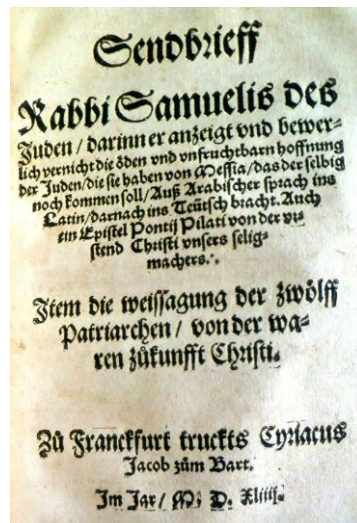 Sendbrieff
Rabbi Samuelis des
Juden / darinn er anzeigt vnd bewer-
lich vernicht die öden vnd vnfruchtbarn hoffnung
der Juden / die sie haben von Messia / das der selbig
noch kommen soll / Auß Arabischer sprach ins
Latin / darnach ins Teütsch bracht. Auch
ein Epistel Pontij Pilati von der vr
stend Christi vnsers selig-
machers.
Item die weissagung der zwölff
Patriarchen / von der wa-
ren zůkunfft Christi.
Zů Franckfurt truckts Cyriacus
Jacob zům Bart.
Im Jar / M. D. Xliiij.